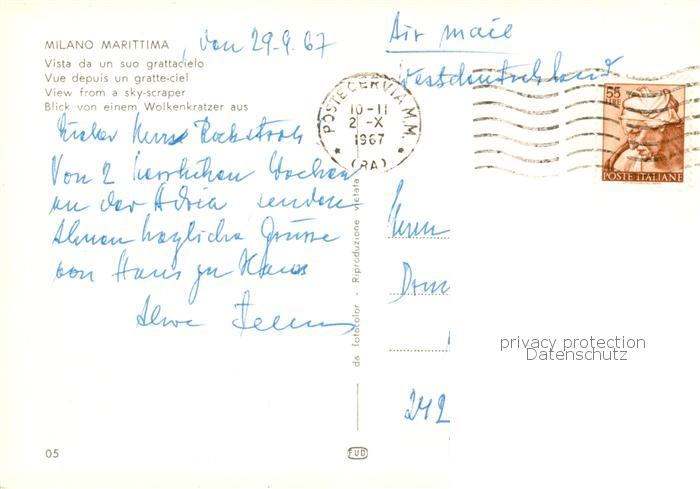 MILANO MARITTIMA, den 29.9.67
Vista da un suo grattacielo
Vue depuis un gratte-ciel
View from a sky-scraper
Blick von einem Wolkenkratzer aus
Lieber Herr Rockstroh
Von 2 herrlichen Wochen
an der Adria senden
Ihnen herzliche Grüsse
von Haus zu Haus
Ihre
Air mail
Westdeutschland
POSTE CERVIA M.M.
10-11
2-X
1967
* (RA) *
55
LIRE
POSTE ITALIANE
Herrn
242
privacy protection
Datenschutz
da fotocolor - Riproduzione vietata
05
FUD